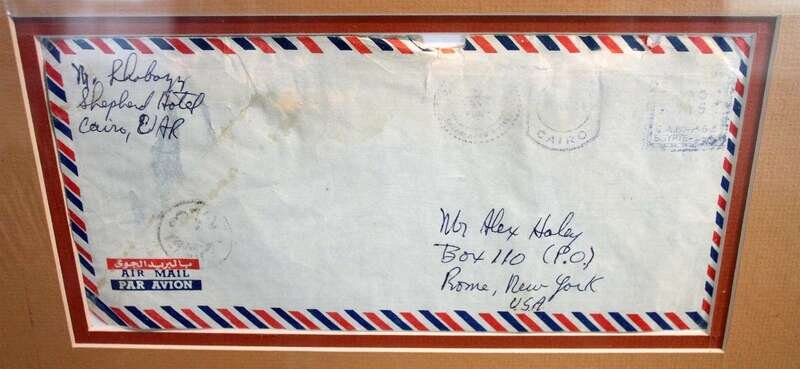 Shepherd Hotel
Cairo, UAR
CAIRO
EGYPTE
Mr Alex Haley
Box 110 (P.O.)
Rome, New York
USA
بالبريد الجوى
AIR MAIL
PAR AVION